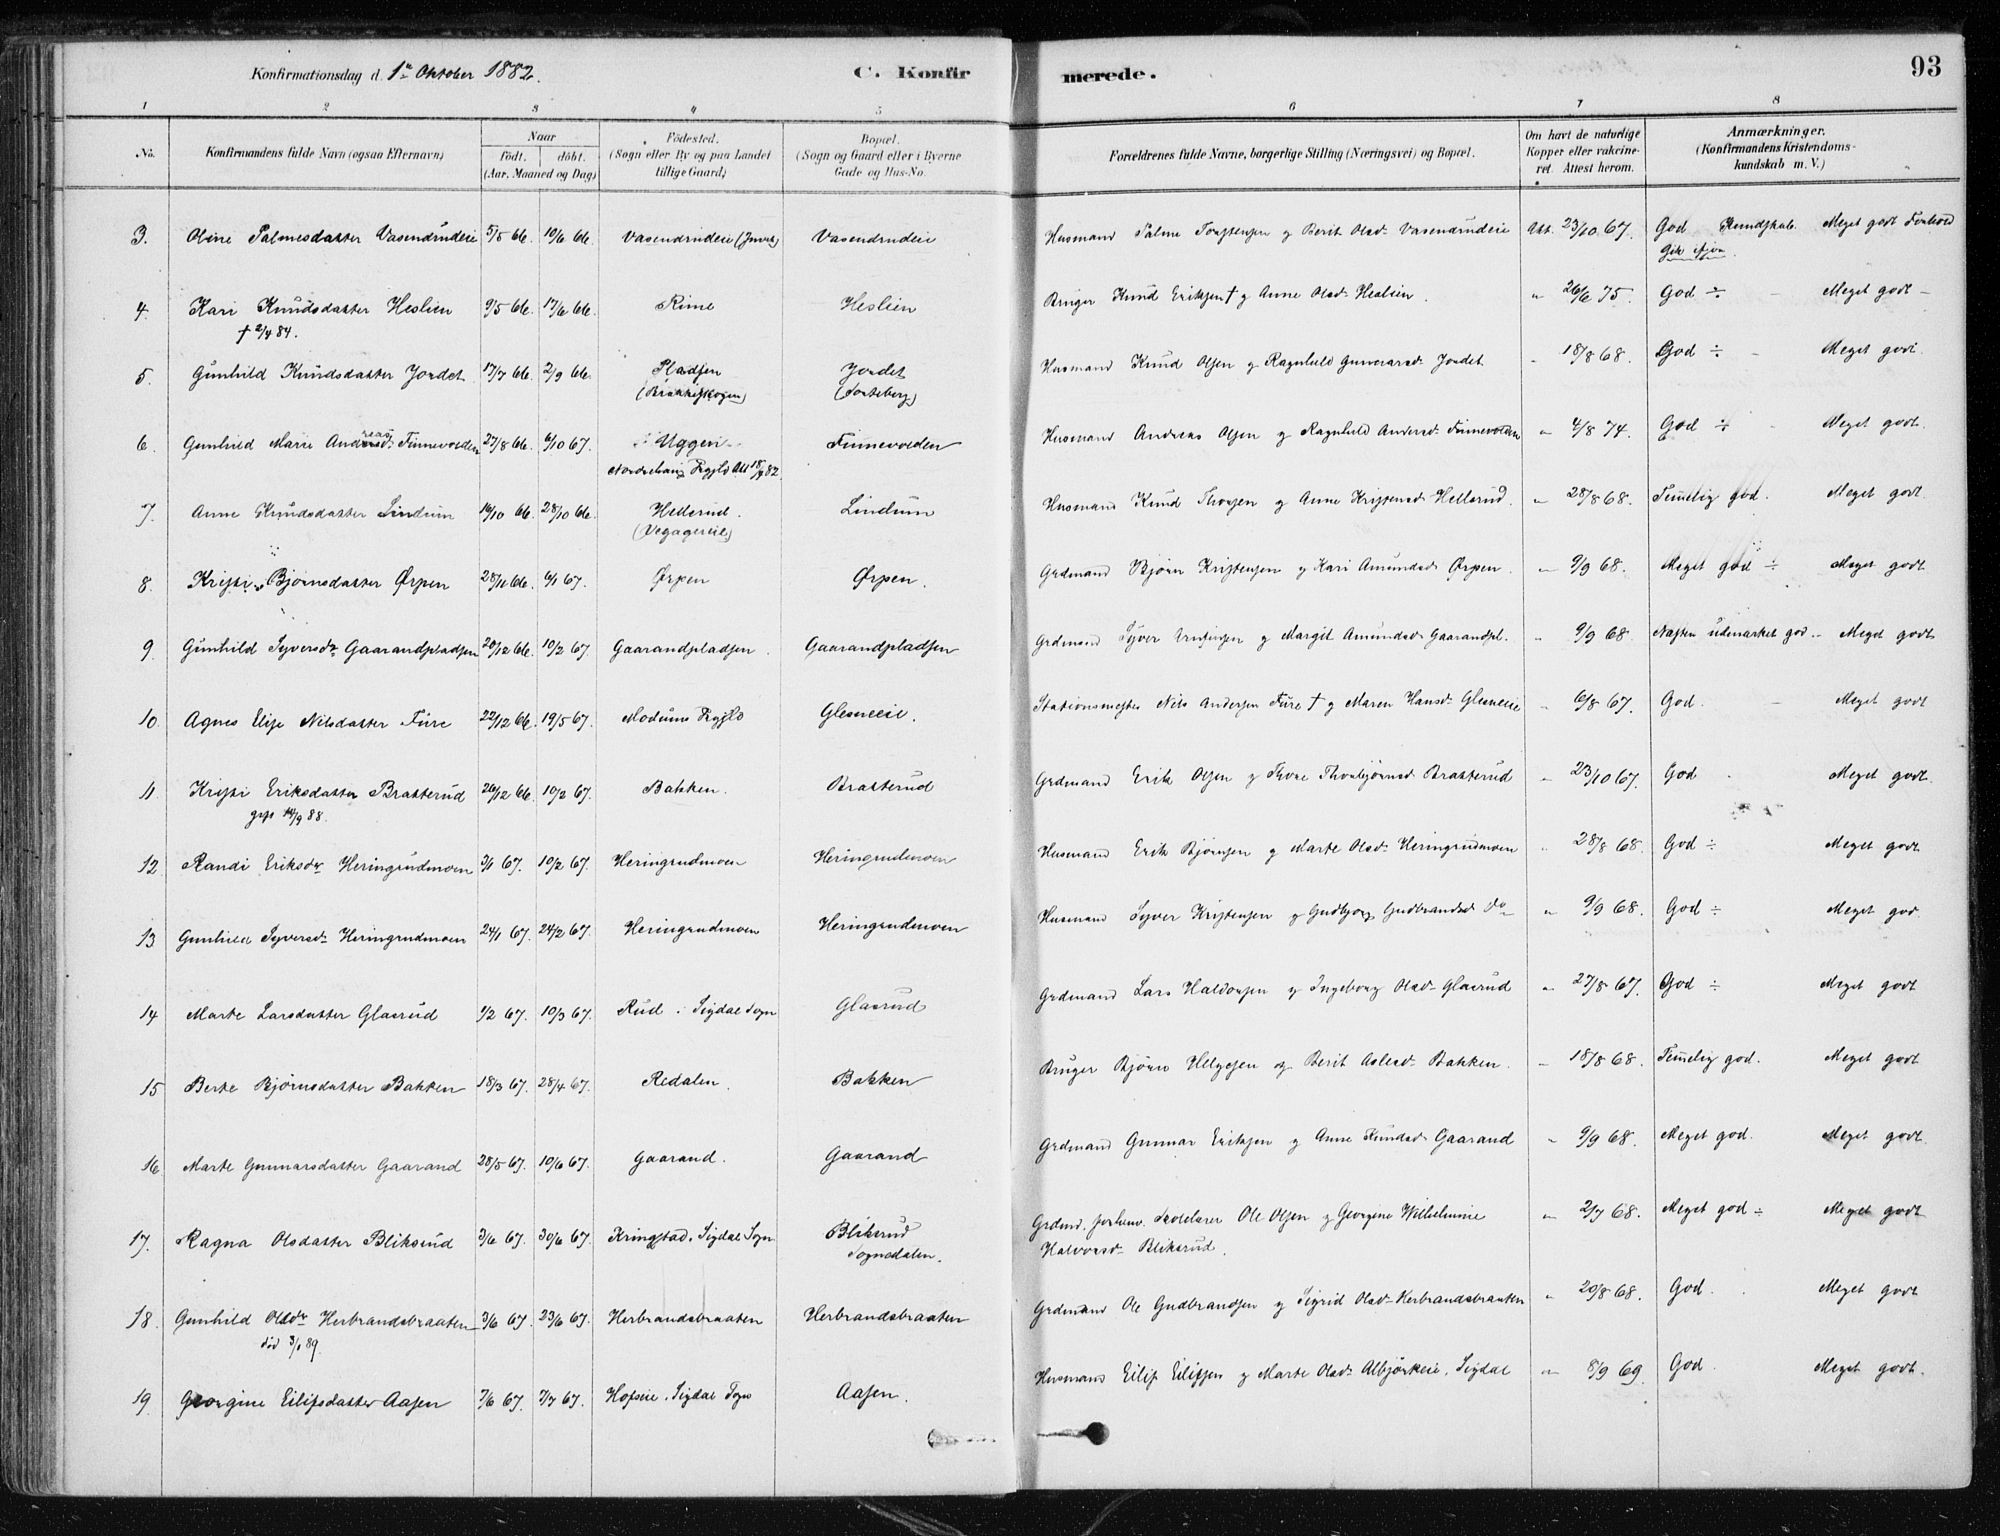 Konfirmationsdag d. 1ste Oktober 1882. C. Konfirmerede. 93
1 2 3 4 5 6 7 8
No. Konfirmandens fulde Navn (ogsaa Efternavn) Naar födt. döbt. (Aar, Maaned og Dag) Födested. (Sogn eller By og paa Landet tillige Gaard) Bopæl. (Sogn og Gaard eller i Byerne Gade og Hus-No. Forældrenes fulde Navne, borgerlige Stilling (Næringsvei) og Bopæl. Om havt de naturlige Kopper eller vakcineret. Attest herom. Anmærkninger. (Konfirmandens Kristendomskundskab m. V.)
3. Oline Palmesdatter Vasendrudeie 5/5 66. 10/6 66. Vasendrudeie Vasendrudeie Husmand Palme Torstensen g Berit Olsd. Vasendrudeie Att. 23/10 67. God Kundskab. Meget godt Forhold
4. Kari Knudsdatter Heslien 9/5 66. 17/6 66. Rime Heslien Bruger Knud Eriksen † g Anne Olsd. Heslien. " 26/6 75. God ÷ Meget godt
† 2/4 84.
5. Gunhild Knudsdatter Jordet 17/7 66. 2/9 66. Pladsen Jordet Husmand Knud Olsen g Ragnhild Gunnarsd. Jordet " 18/8 68. God ÷ Meget godt.
(Brækkeskogen) (Forteberg)
6. Gunhild Marie Andreasd. Finnevolden 27/8 66. 6/10 67. Uggen Finnevolden Husmand Andreas Olsen g Ragnhild Andersd. Finnevolden " 4/8 74. God ÷ Meget godt.
7. Anne Knudsdatter Lindum 16/10 66. 28/10 66. Hellerud. Lindum Husmand Knud Thorsen g Anne Kristensd. Hellerud. " 28/8 68. Temelig god. Meget godt
8. Kristi Bjørnsdatter Ørpen 28/11 66. 6/1 67. Ørpen Ørpen. Grdmand Bjørn Kristensen g Kari Amundsd. Ørpen. " 9/9 68. Meget god ÷ Meget godt
9. Gunhild Syversdr Gaarandpladsen 20/12 66. 10/2 67. Gaarandpladsen. Gaarandpladsen Grdmand Syver Arnesen g Margit Amundsd. Gaarandpl. " 9/9 68. Næsten udmærket god. Meget godt
10 Agnes Elise Nilsdatter Fure 22/12 66. 19/5 67. Modums Prgjld Glesneeie. Stationsmester Nils Andersen Fure † g Maren Hansd. Glesneeie " 6/8 67. God. Meget godt
11 Kristi Eriksdatter Bratterud 26/12 66. 10/2 67. Bakken. Bratterud Grdmand Erik Olsen g Thore Thorbjørnsd. Bratterud " 23/10 67. God Meget godt.
12 Randi Eriksdr Heringrudmoen 3/1 67. 10/2 67. Heringrudmoen Heringrudmoen Husmand Erik Bjørnsen g Marte Olsd. Heringrudmoen " 28/8 68. God ÷ Meget godt
13 Gunhild Syversdr Heringrudmoen 24/1 67. 24/2 67. Heringrudmoen Heringrudmoen Husmand Syver Kristensen g Gudbjørg Gudbrandsd. Do " 9/9 68. God ÷ Meget god
14 Marte Larsdatter Glasrud 1/2 67. 10/3 67. Rud, Sigdal Sogn Glasrud Grdmand Lars Haldorsen g Ingeborg Olsd. Glasrud " 27/8 67. God ÷ Meget godt
15 Berte Bjørnsdatter Bakken 18/3 67. 28/4 67. Redalen. Bakken Bruger Bjørn Helgesen og Berit Aslesd. Bakken. " 18/8 68. Temelig god. Meget godt
16 Marte Gunnarsdatter Gaarand 28/5 67. 10/6 67. Gaarand. Gaarand Grdmand Gunnar Eriksen g Anne Knudsd. Gaarand " 9/9 68. Meget god. Meget godt.
17. Ragna Olsdatter Bliksrud 3/6 67. 30/6 67. Kringstad, Sigdal Sogn Bliksrud Grdmd. forhenv. Skolelærer Ole Olsen g Georgine Wilhelmine " 2/7 68. Meget god ÷ Meget godt
Sognedalen. Halvorsd. Bliksrud.
18. Gunhild Olsdr Herbrandsbraaten 3/6 67. 23/6 67. Herbrandsbraaten Herbrandsbraaten Grdmand Ole Gudbrandsen g Sigrid Olsd. Herbrandsbraaten " 20/8 68. God. Meget godt
død 3/1 89.
19. Georgine Eilifsdatter Aasen 7/6 67. 7/7 67. Hofseie, Sigdal Sogn Aasen. Husmand Eilif Eilifsen g Marte Olsd. Albjørkeie, Sigdal " 8/9 69. God. Meget godt.